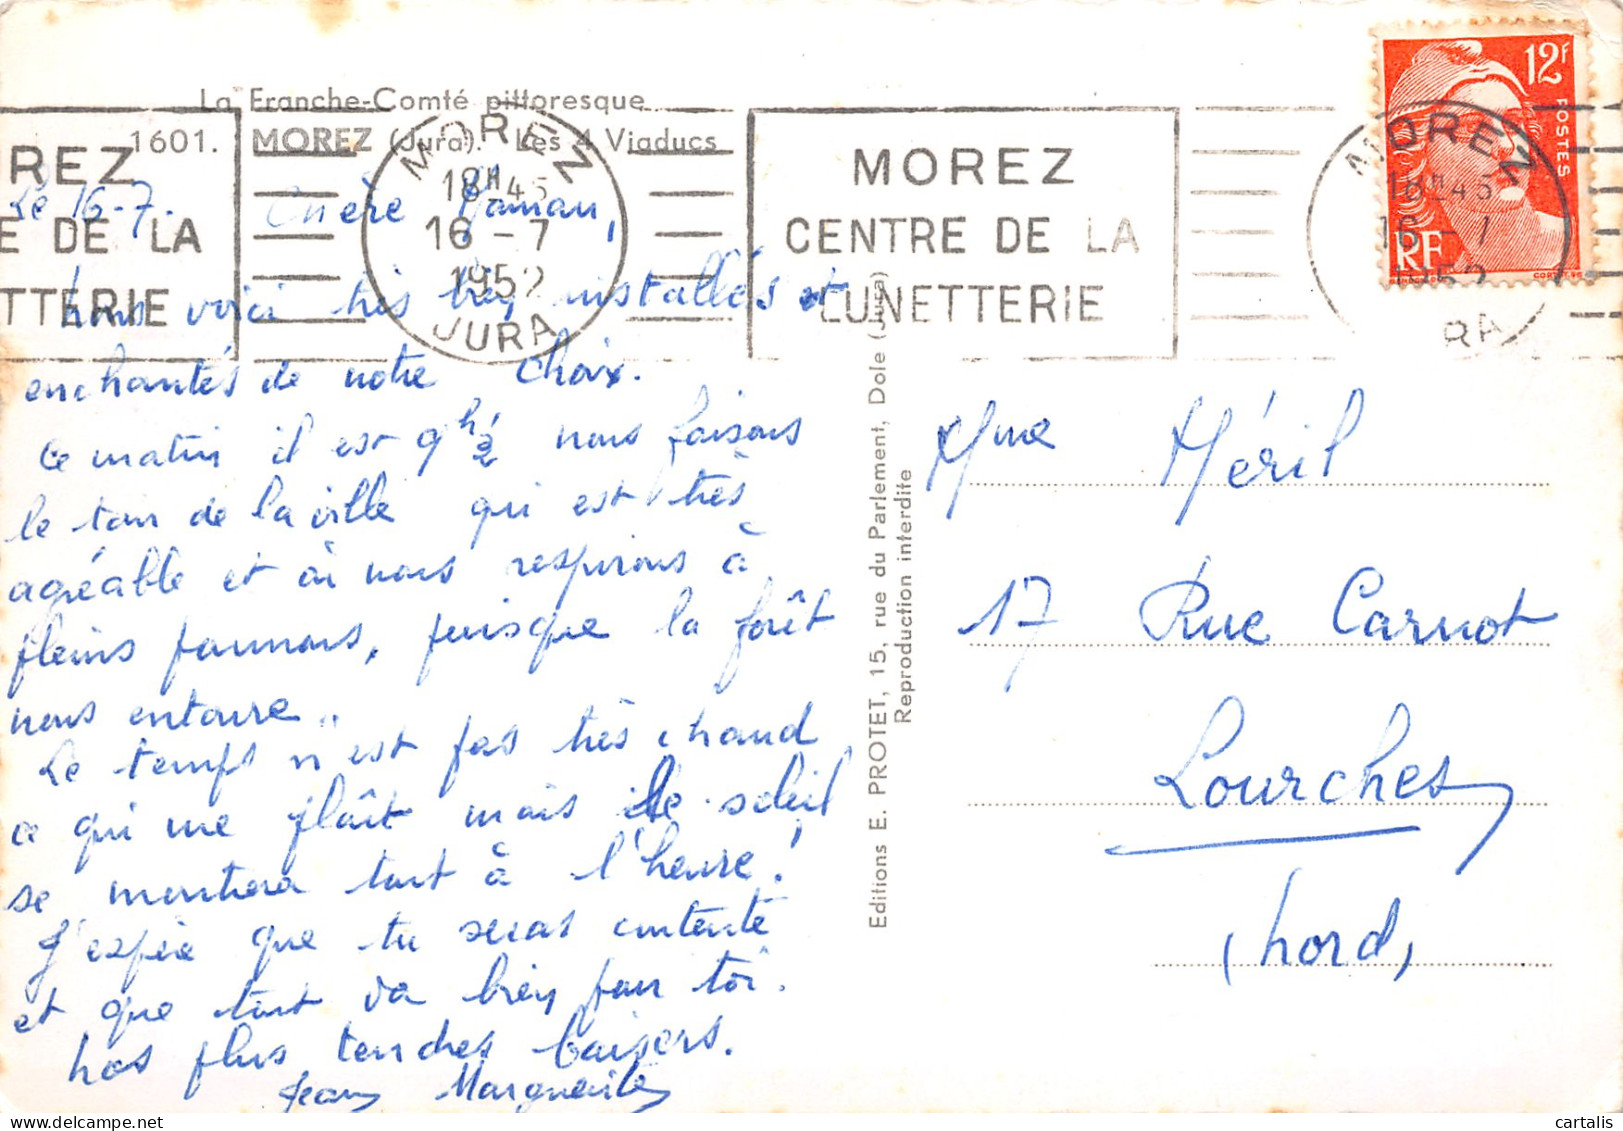 La Franche-Comté pittoresque
1601. MOREZ (Jura). Les 4 Viaducs
REZ
E DE LA
TTERIE
MOREZ
18H45
16-7
1952
JURA
MOREZ
CENTRE DE LA
LUNETTERIE
MOREZ
18H45
16-7
1952
RA
12F
POSTES
RF
Le 16-7.
Chère Maman,
Nous voici très bien installés et
enchantés de notre choix.
Ce matin il est 9h 1/2 nous faisons
le tour de la ville qui est très
agréable et où nous respirons à
pleins poumons, puisque la forêt
nous entoure..
Le temps n'est pas très chaud
ce qui me plaît mais le soleil
se montrera tout à l'heure!
J'espère que tu seras contente
et que tout va bien pour toi.
Nos plus tendres baisers.
Jean Marguerite
Editions E. PROTET, 15, rue du Parlement, Dole (Jura)
Reproduction interdite
Mme Méril
17 Rue Carnot
Lourches
(Nord)
cartalis